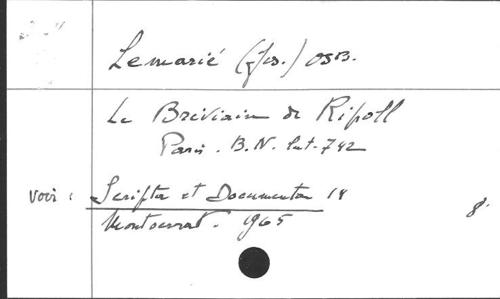 Lemarié (Jos.) OSB.
Le Bréviaire de Ripoll
Paris. B.N. lat. 742
Voir : Scripta et Documenta 14
Montserrat. 1965
8°